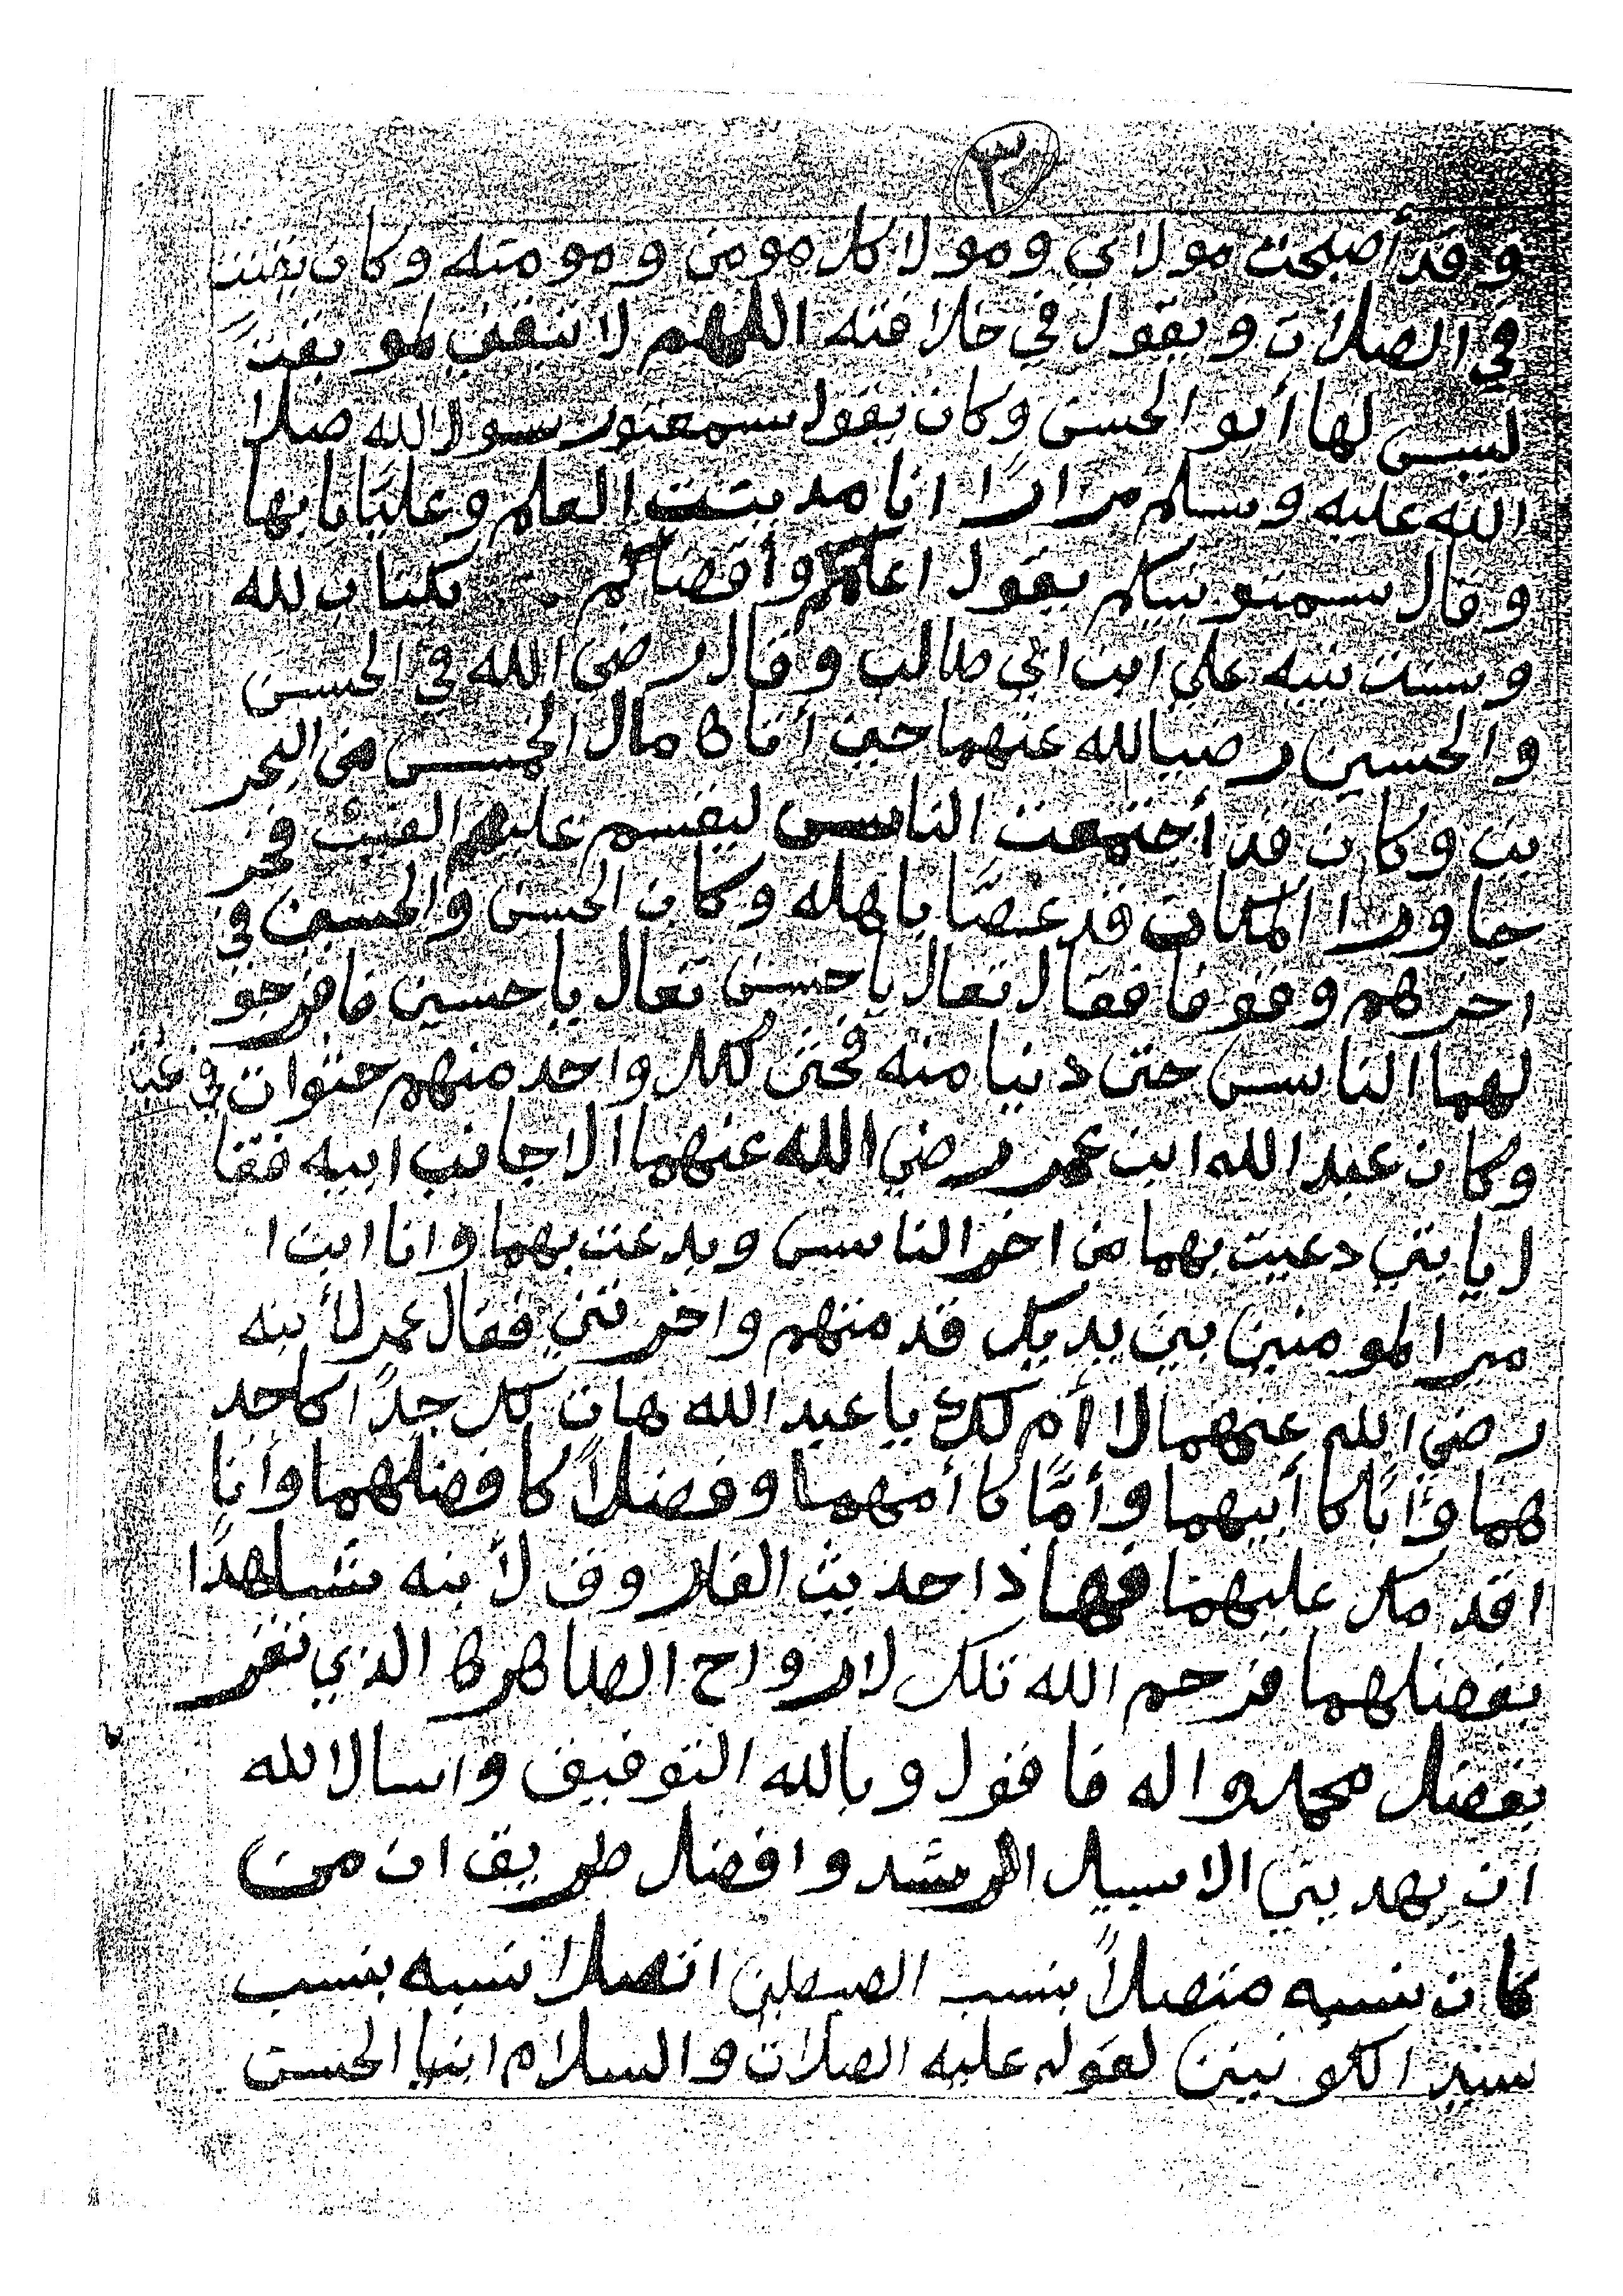 ٣
وقد أصبحت مولاي ومولا كل مومن ومومنه وكان يقنت
في الصلات ويقول في خلافته اللهم لا تبقني لمو بقتً
ليس لها أبو الحسن وكان يقول سمعتور سولا لله صلا
الله عليه وسلم مرارًا انا مدينت العلم وعليًا بابها
وقال سمتو نبيكم يقول اعلمكم وأقضاكم بكتاب لله
وسنت نبيه علي ابن ابي طالب وقال رضي الله في الحسن
والحسين رضيالله عنهما حين أتاه مال الخمس من البحر
ين وكان قد أجتمعت الناس ليقسم عليهم الفيئ فخر
جا ورا المكان قد غصًا باهله وكان الحسن والحسين في
اخرهم وقوفا فقال تعال يا حسن تعال يا حسين فافرجو
لهما الناس حتى دنيا منه فحثى لكل واحد منهم حثوات في عبا
وكان عبد الله ابن عمر رضي الله عنهما الا جانب ابيه فقا
ل يابتي دعيت بهما من اخر الناس وبدعت بهما وانا ابن ا
مير المومنين بين يديك قدمتهم واخرتني فقال عمر لأبنه
رضي الله عنهما لا أم لك يا عبد الله هات لك جدًا كاجد
هما وأبًا كا أبيهما وأمًا كا أمهما وفضلاً كا فضلهما وأنا
اقدمك عليهما فهاذا حديث الفاروق لأبنه شاهدًا
بفضلهما فرحم الله تلك لارواح الطاهره الذي تقر
بفضل محمد واله فاقول وبالله التوفيق واسالا لله
ان يهديني الا سبيل الرشد وافضل طريق ان من
كان نسبه متصلاً بنسب الصبطين اتصلا نسبه بنسب
سيد الكونين لقوله عليه الصلات والسلام ابنيا الحسن